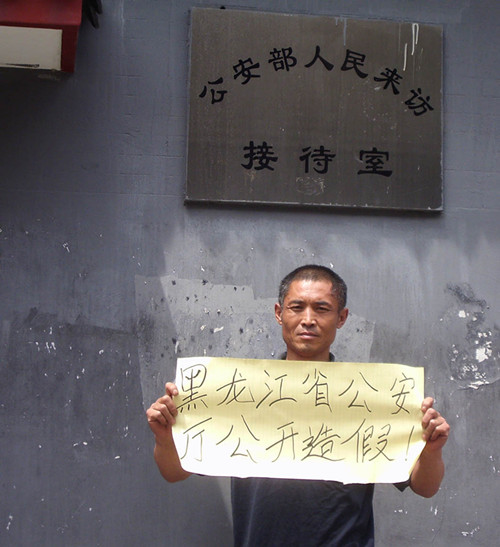 公安部人民来访
接待室
黑龙江省公安
厅公开造假！